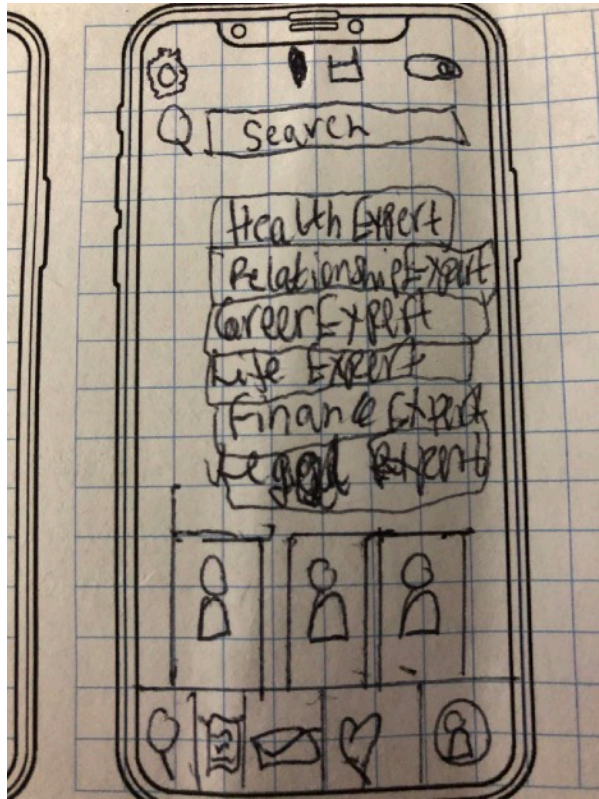 Search
Health Expert
Relationship Expert
Career Expert
Life Expert
Finance Expert
Legal Expert